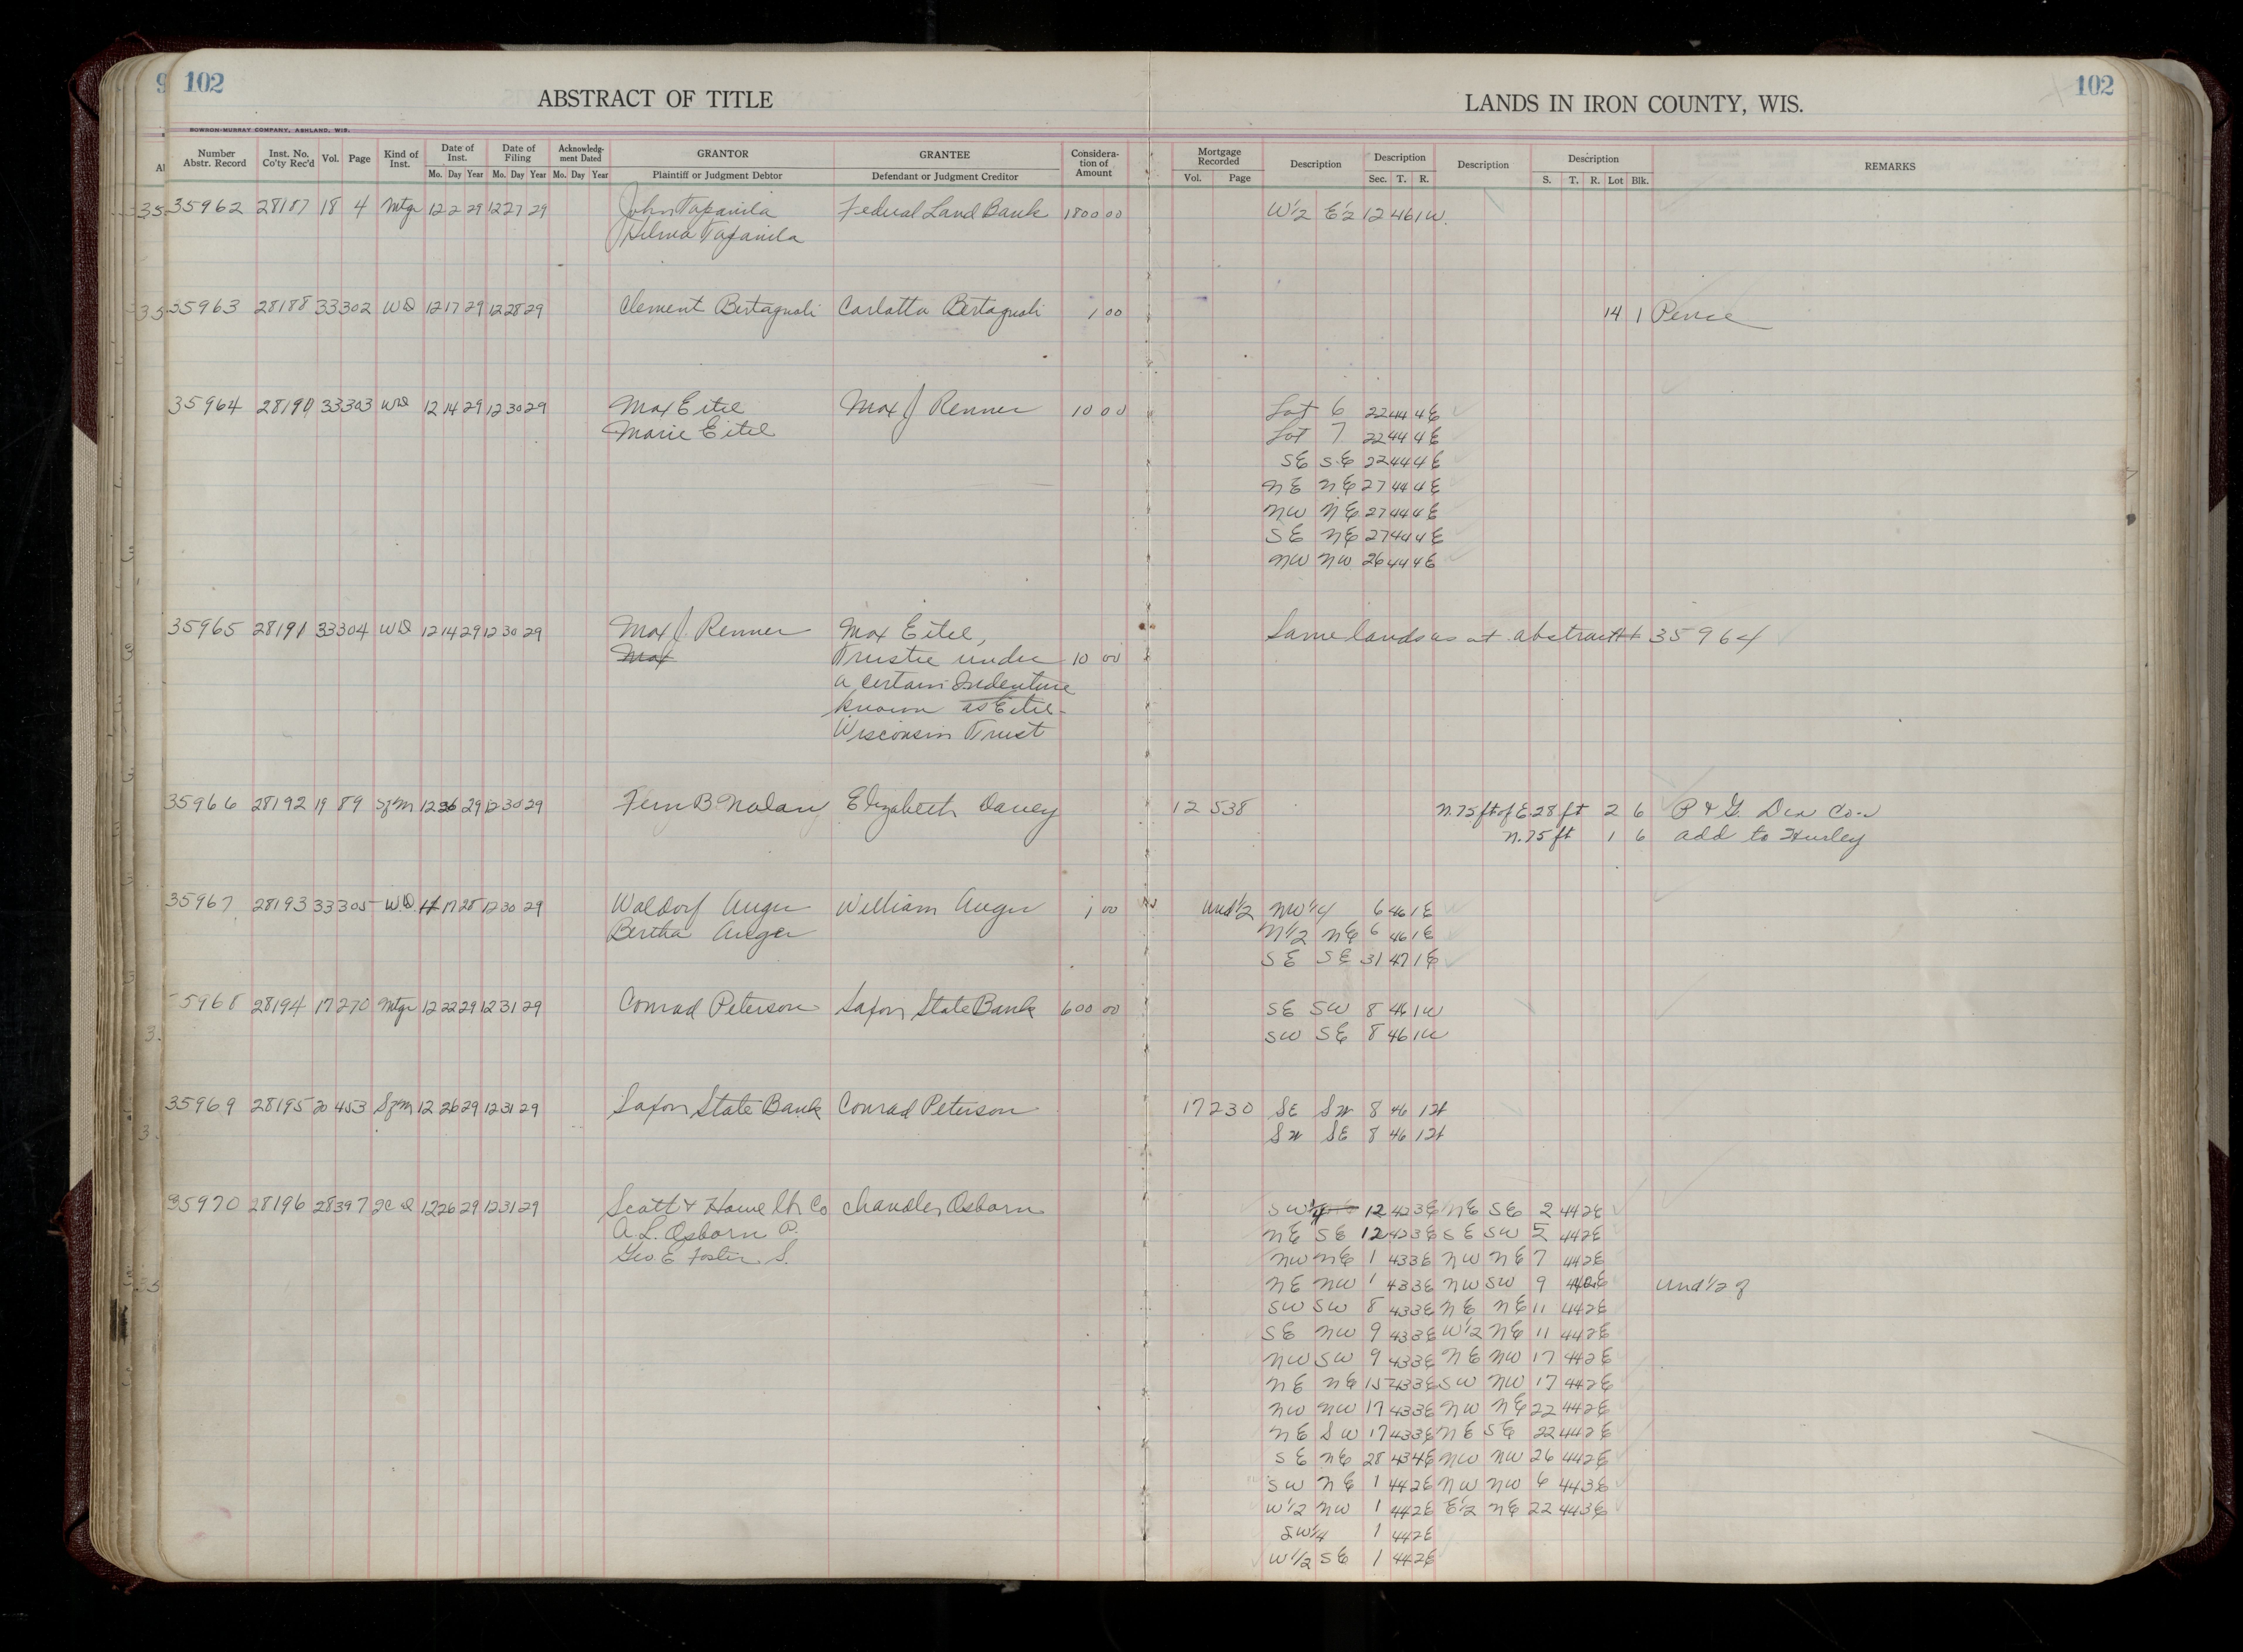 102
ABSTRACT OF TITLE
LANDS IN IRON COUNTY, WIS.
102
BOWRON-MURRAY COMPANY, ASHLAND, WIS.
Number Abstr. Record Inst. No. Co'ty Rec'd Vol. Page Kind of Inst. Date of Inst. Mo. Day Year Date of Filing Mo. Day Year Acknowledgment Dated Mo. Day Year GRANTOR Plaintiff or Judgment Debtor GRANTEE Defendant or Judgment Creditor Consideration of Amount Mortgage Recorded Vol. Page Description Description Sec. T. R. Description Description S. T. R. Lot Blk. REMARKS
35962 28187 18 4 Mtge 12 2 29 12 27 29 John Tapanila Federal Land Bank 1800 00 W1/2 E1/2 12 46 1W
Hilma Tapanila
35963 28188 33 302 WD 12 17 29 12 28 29 Clement Bertagnoli Carlotta Bertagnoli 1 00 14 1 Pence
35964 28190 33 303 WD 12 14 29 12 30 29 Max Eitel Max J Renner 10 00 Lot 6 22 44 4E
Marie Eitel Lot 7 22 44 4E
SE SE 22 44 4E
NE NE 27 44 4E
NW NE 27 44 4E
SE NE 27 44 4E
NW NW 26 44 4E
35965 28191 33 304 WD 12 14 29 12 30 29 Max J. Renner Max Eitel, Same lands as at abstract# 35964
Max Trustee under 10 00
a certain Indenture
known as Eitel-
Wisconsin Trust
35966 28192 19 89 Sfm 12 26 29 12 30 29 Fern B. Nolan Elizabeth Davey 12 538 N.75 ft of E.28 ft 2 6 P & G. Dev Co.
N.75 ft 1 6 add to Hurley
35967 28193 33 305 W.D. 17 28 12 30 29 Waldorf Auger William Auger 1 00 Und1/2 NW1/4 6 46 1E
Bertha Auger N1/2 NE 6 46 1E
SE SE 31 47 1E
5968 28194 17 270 Mtge 12 22 29 12 31 29 Conrad Peterson Saxon State Bank 600 00 SE SW 8 46 1W
SW SE 8 46 1W
35969 28195 20 453 Sfm 12 26 29 12 31 29 Saxon State Bank Conrad Peterson 17 230 SE SW 8 46 1W
SW SE 8 46 1W
35970 28196 28 397 QCD 12 26 29 12 31 29 Scott & Howe Lbr Co Chandler Osborn SW1/4 12 43 3E NE SE 2 44 2E
A. L. Osborn P. NE SE 12 43 3E SE SW 5 44 2E
Geo. E Foster S. NW NE 1 43 3E NW NE 7 44 2E
NE NW 1 43 3E NW SW 9 44 2E Und 1/2 of
SW SW 8 43 3E NE NE 11 44 2E
SE NW 9 43 3E W1/2 NE 11 44 2E
NW SW 9 43 3E NE NW 17 44 2E
NE NE 15 43 3E SW NW 17 44 2E
NW NW 17 43 3E NW NE 22 44 2E
NE SW 17 43 3E NE SE 22 44 2E
SE NE 28 43 4E NW NW 26 44 2E
SW NE 1 44 2E NW NW 6 44 3E
W1/2 NW 1 44 2E E1/2 NE 22 44 3E
SW1/4 1 44 2E
W1/2 SE 1 44 2E